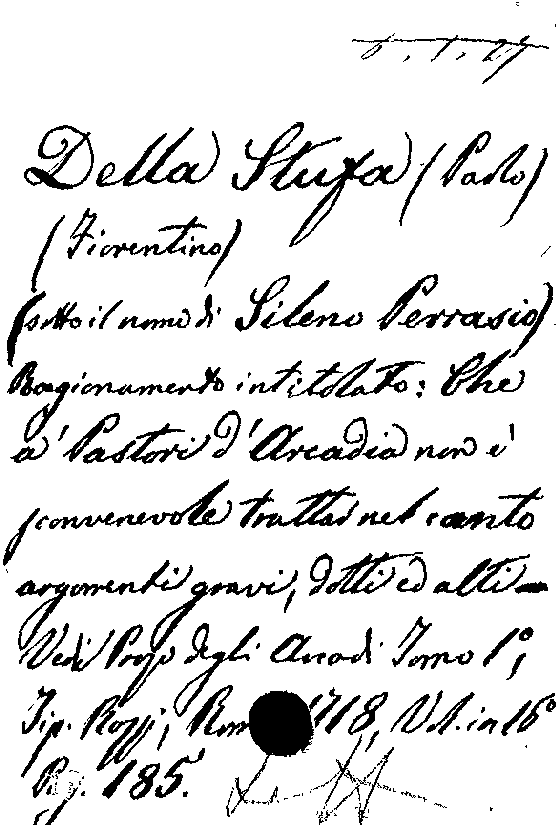 Della Stufa (Paolo)
(Fiorentino)
(sotto il nome di Sileno Perrasio)
Ragionamento intitolato: Che
a' Pastori d'Arcadia non è
sconvenevole trattar nel canto
argomenti gravi, dotti ed alti—
Vedi Prose degli Arcadi Tomo 1°,
Tip. Rossi, Rom 1718, Vol. in 16°
Pag. 185.